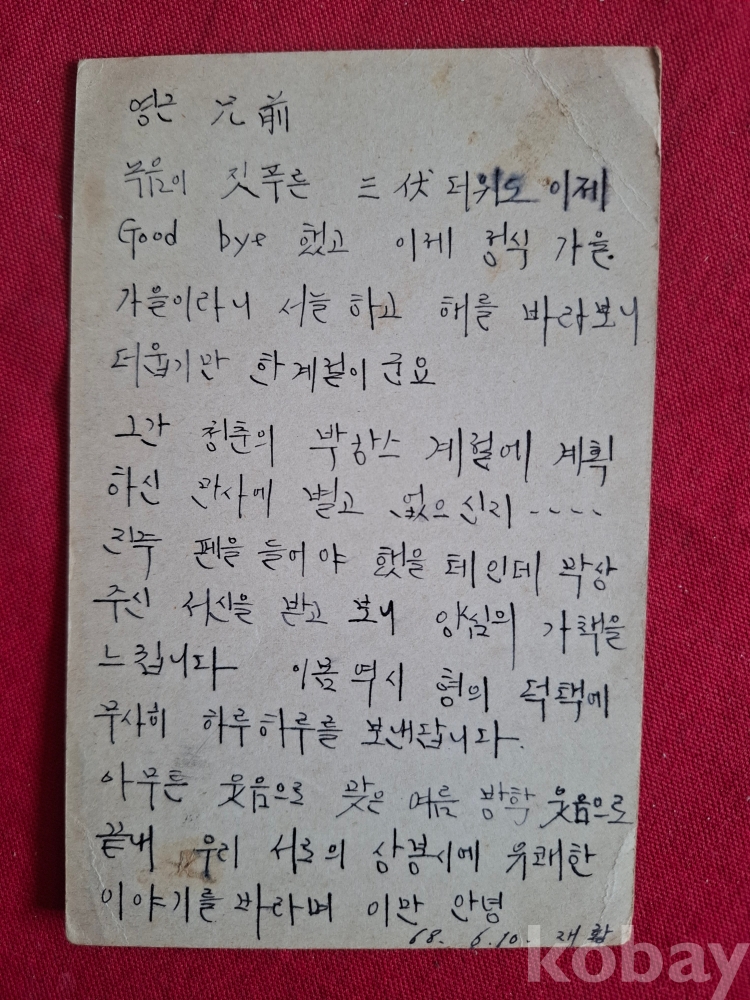 영근 兄 前
녹음이 짓푸른 三伏 더위도 이제
Good bye 했고 이제 정식 가을.
가을이라니 서늘 하고 해를 바라보니
더웁기만 한 계절이 군요
그간 청춘의 계절에 계획
하신 만사에 별고 없으신지 ----
펜을 들어야 했을 테인데 막상
주신 서신을 받고 보니 양심의 가책을
느낍니다 이몸 역시 형의 덕택에
무사히 하루하루를 보낸답니다.
아무튼 웃음으로 맞은 여름 방학 웃음으로
끝내 우리 서로의 상봉시에 유쾌한
이야기를 바라며 이만 안녕
68. 6.10. 재황
kobay